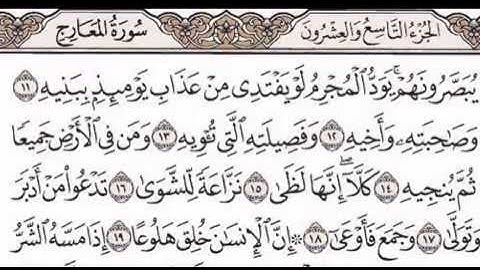 الجزء التاسع والعشرون سورة المعارج
يُبَصَّرُونَهُمْ ۚ يَوَدُّ ٱلْمُجْرِمُ لَوْ يَفْتَدِى مِنْ عَذَابِ يَوْمِئِذٍۭ بِبَنِيهِ ١١
وَصَٰحِبَتِهِۦ وَأَخِيهِ ١٢ وَفَصِيلَتِهِ ٱلَّتِى تُـْٔوِيهِ ١٣ وَمَن فِى ٱلْأَرْضِ جَمِيعًا
ثُمَّ يُنجِيهِ ١٤ كَلَّآ ۖ إِنَّهَا لَظَىٰ ١٥ نَزَّاعَةً لِّلشَّوَىٰ ١٦ تَدْعُوا۟ مَنْ أَدْبَرَ
وَتَوَلَّىٰ ١٧ وَجَمَعَ فَأَوْعَىٰٓ ١٨ ۞ إِنَّ ٱلْإِنسَٰنَ خُلِقَ هَلُوعًا ١٩ إِذَا مَسَّهُ ٱلشَّرُّ